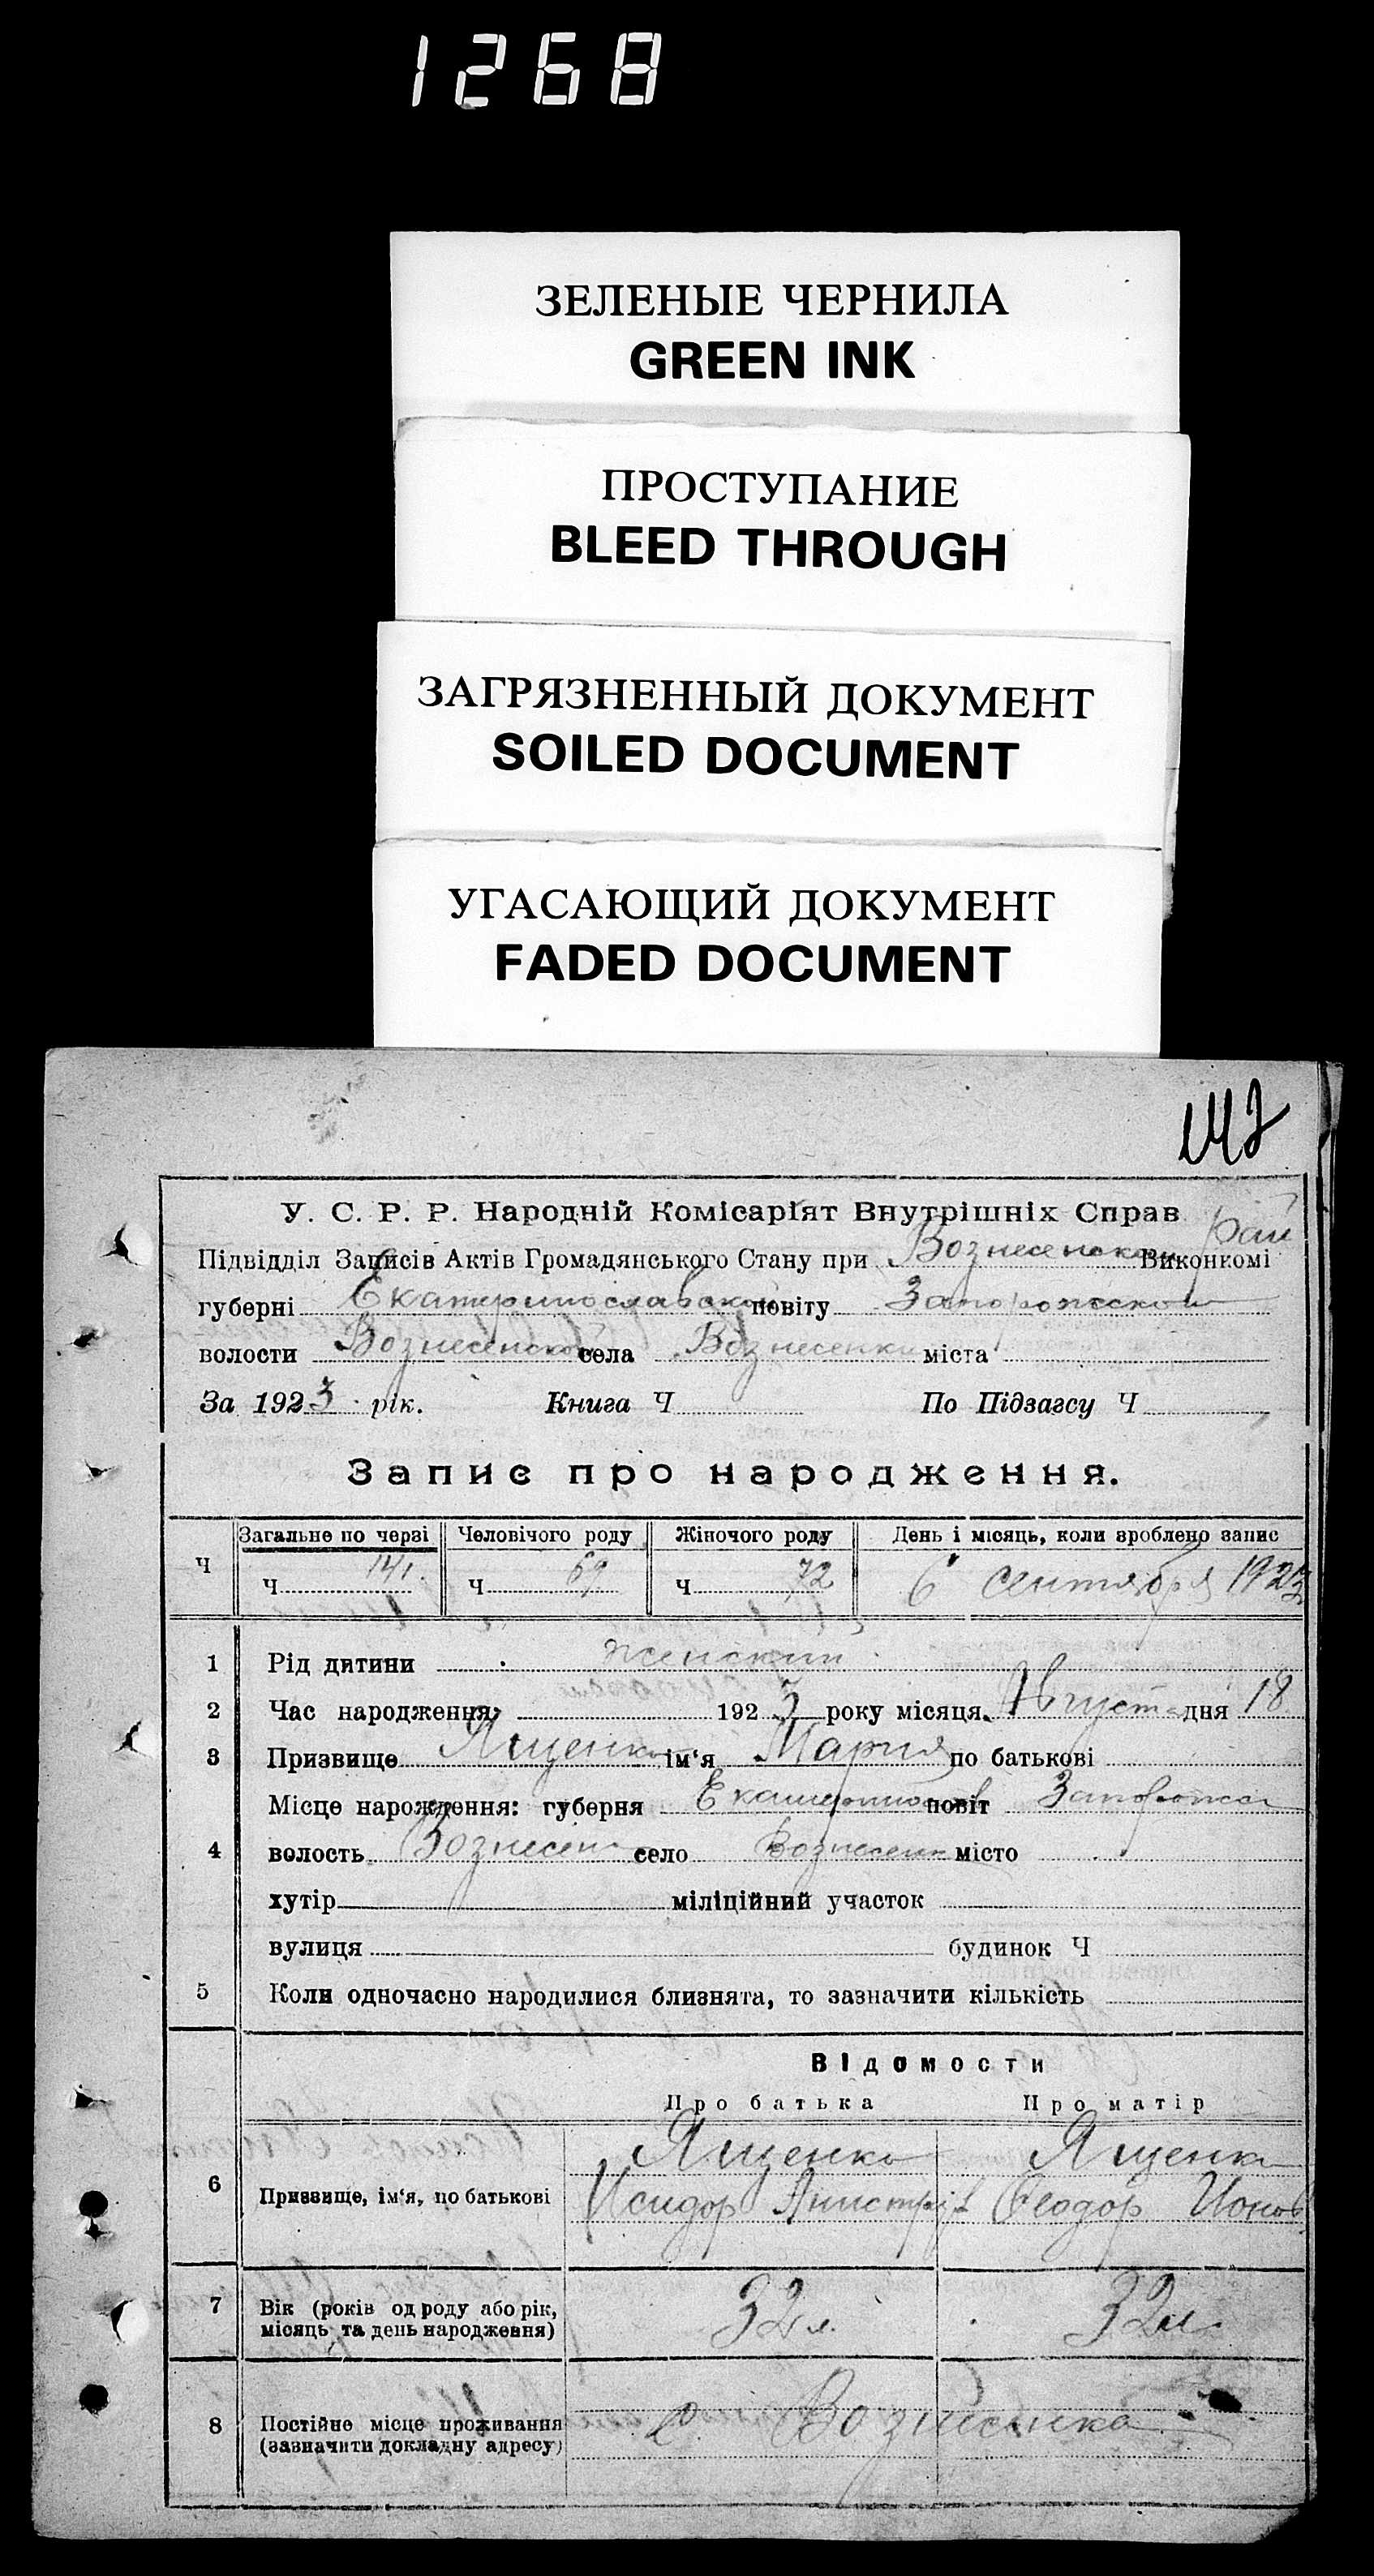 1268
ЗЕЛЕНЫЕ ЧЕРНИЛА
GREEN INK
ПРОСТУПАНИЕ
BLEED THROUGH
ЗАГРЯЗНЕННЫЙ ДОКУМЕНТ
SOILED DOCUMENT
УГАСАЮЩИЙ ДОКУМЕНТ
FADED DOCUMENT
142
У. С. Р. Р. Народній Комісаріят Внутрішніх Справ
Підвідділ Записів Актів Громадянського Стану при Вознесенском рай Виконкомі
губерні Екатеринославской повіту Запорожской
волости Вознесенской села Вознесенки міста
За 1923 рік. Книга Ч По Підзагсу Ч
Запис про народження.
Ч Загальне по черзі Человічого роду Жіночого роду День і місяць, коли зроблено запис
Ч 141. Ч 69 Ч 72 6 сентября 1923
1 Рід дитини женский
2 Час народження: 1923 року місяця Августа дня 18
3 Призвище Ященко ім'я Мария по батькові
Місце нарождення: губерня Екатеринослав повіт Запорожск
4 волость Вознесен село Вознесенк місто
хутір міліційний участок
вулиця будинок Ч
5 Коли одночасно народилися близнята, то зазначити кількість
Відомости
Про батька Про матір
Ященко Ященко
6 Призвище, ім'я, по батькові Исидор Феодор Ионов
7 Вік (років од роду або рік, місяць та день народження) 32 л. 32 л.
8 Постійне місце проживання (зазначити докладну адресу) с. Вознесенка